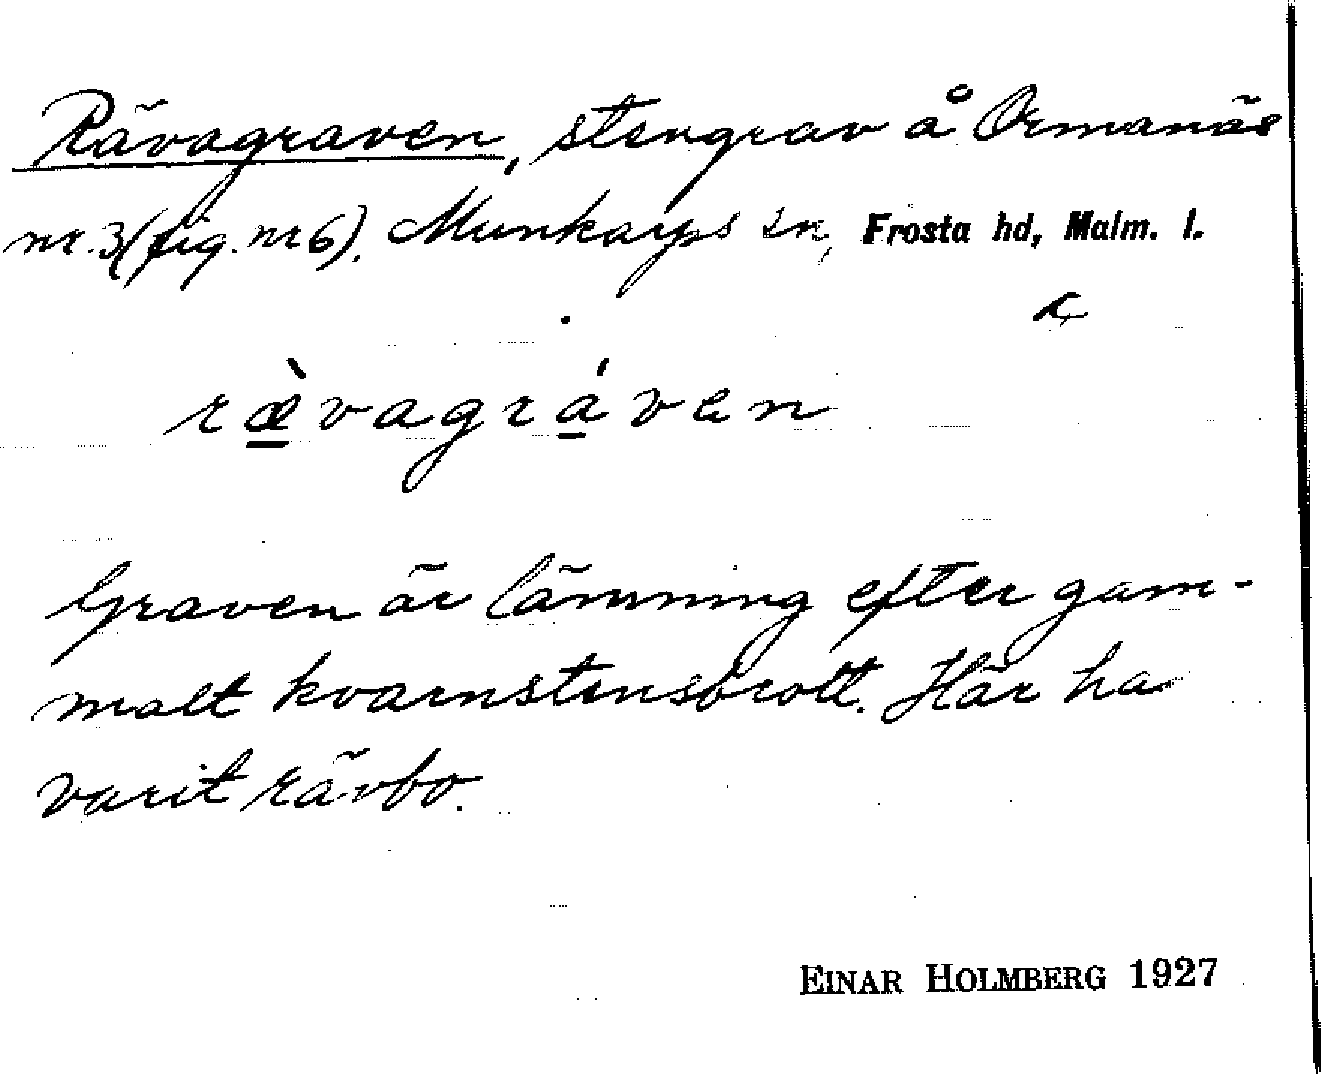 Rävagraven, stengrav å Ormanäs
nr. 3 (fig. nr 6). Munkarps sn, Frosta hd, Malm. l.
ræ̠̀vagrá̠ven
Graven är lämning efter gam-
malt kvarnstensbrott. Här ha
varit rävbo.
EINAR HOLMBERG 1927